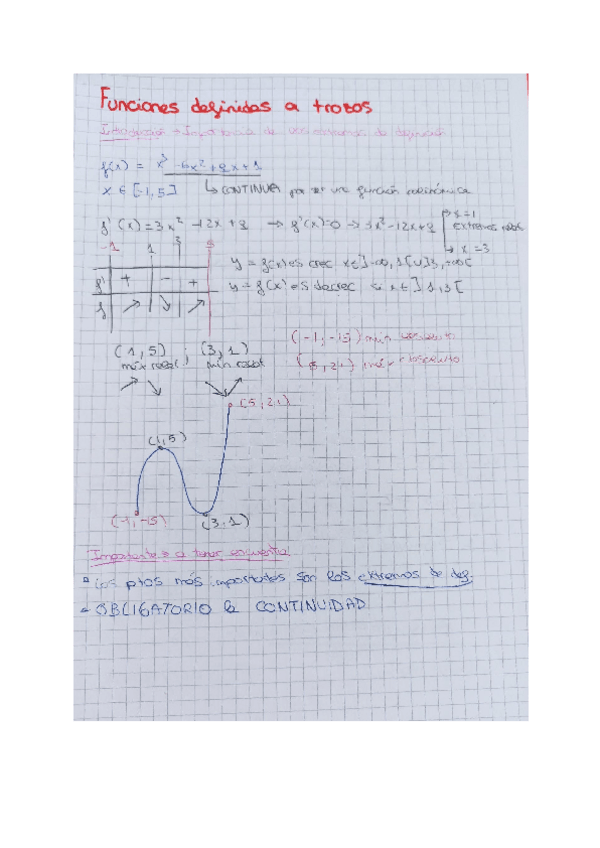 Funciones definidas a trozos
Introducción → Importancia de los extremos de definición
f(x) = x³ -6x² + 9x + 1
x ∈ [-1, 5] ↳ CONTINUA por ser una función polinómica
f'(x) = 3x² -12x + 9 → f'(x)=0 → 3x²-12x+9
x=1
extremos
x = 3
-1 1 3 5
f' + - +
f ↗ ↘ ↗
y = f(x) es crec x∈]-∞, 1[ ∪ ]3, +∞[
y = f(x) es decrec x∈]1, 3[
(1, 5) ; (3, 1)
máx relat min relat
(-1, -15) min absoluto
(5, 21) máx absoluto
(5, 21)
(1, 5)
(-1, -15) (3, 1)
Importante a tener en cuenta
Los ptos más importantes son los extremos de def.
- OBLIGATORIO la CONTINUIDAD